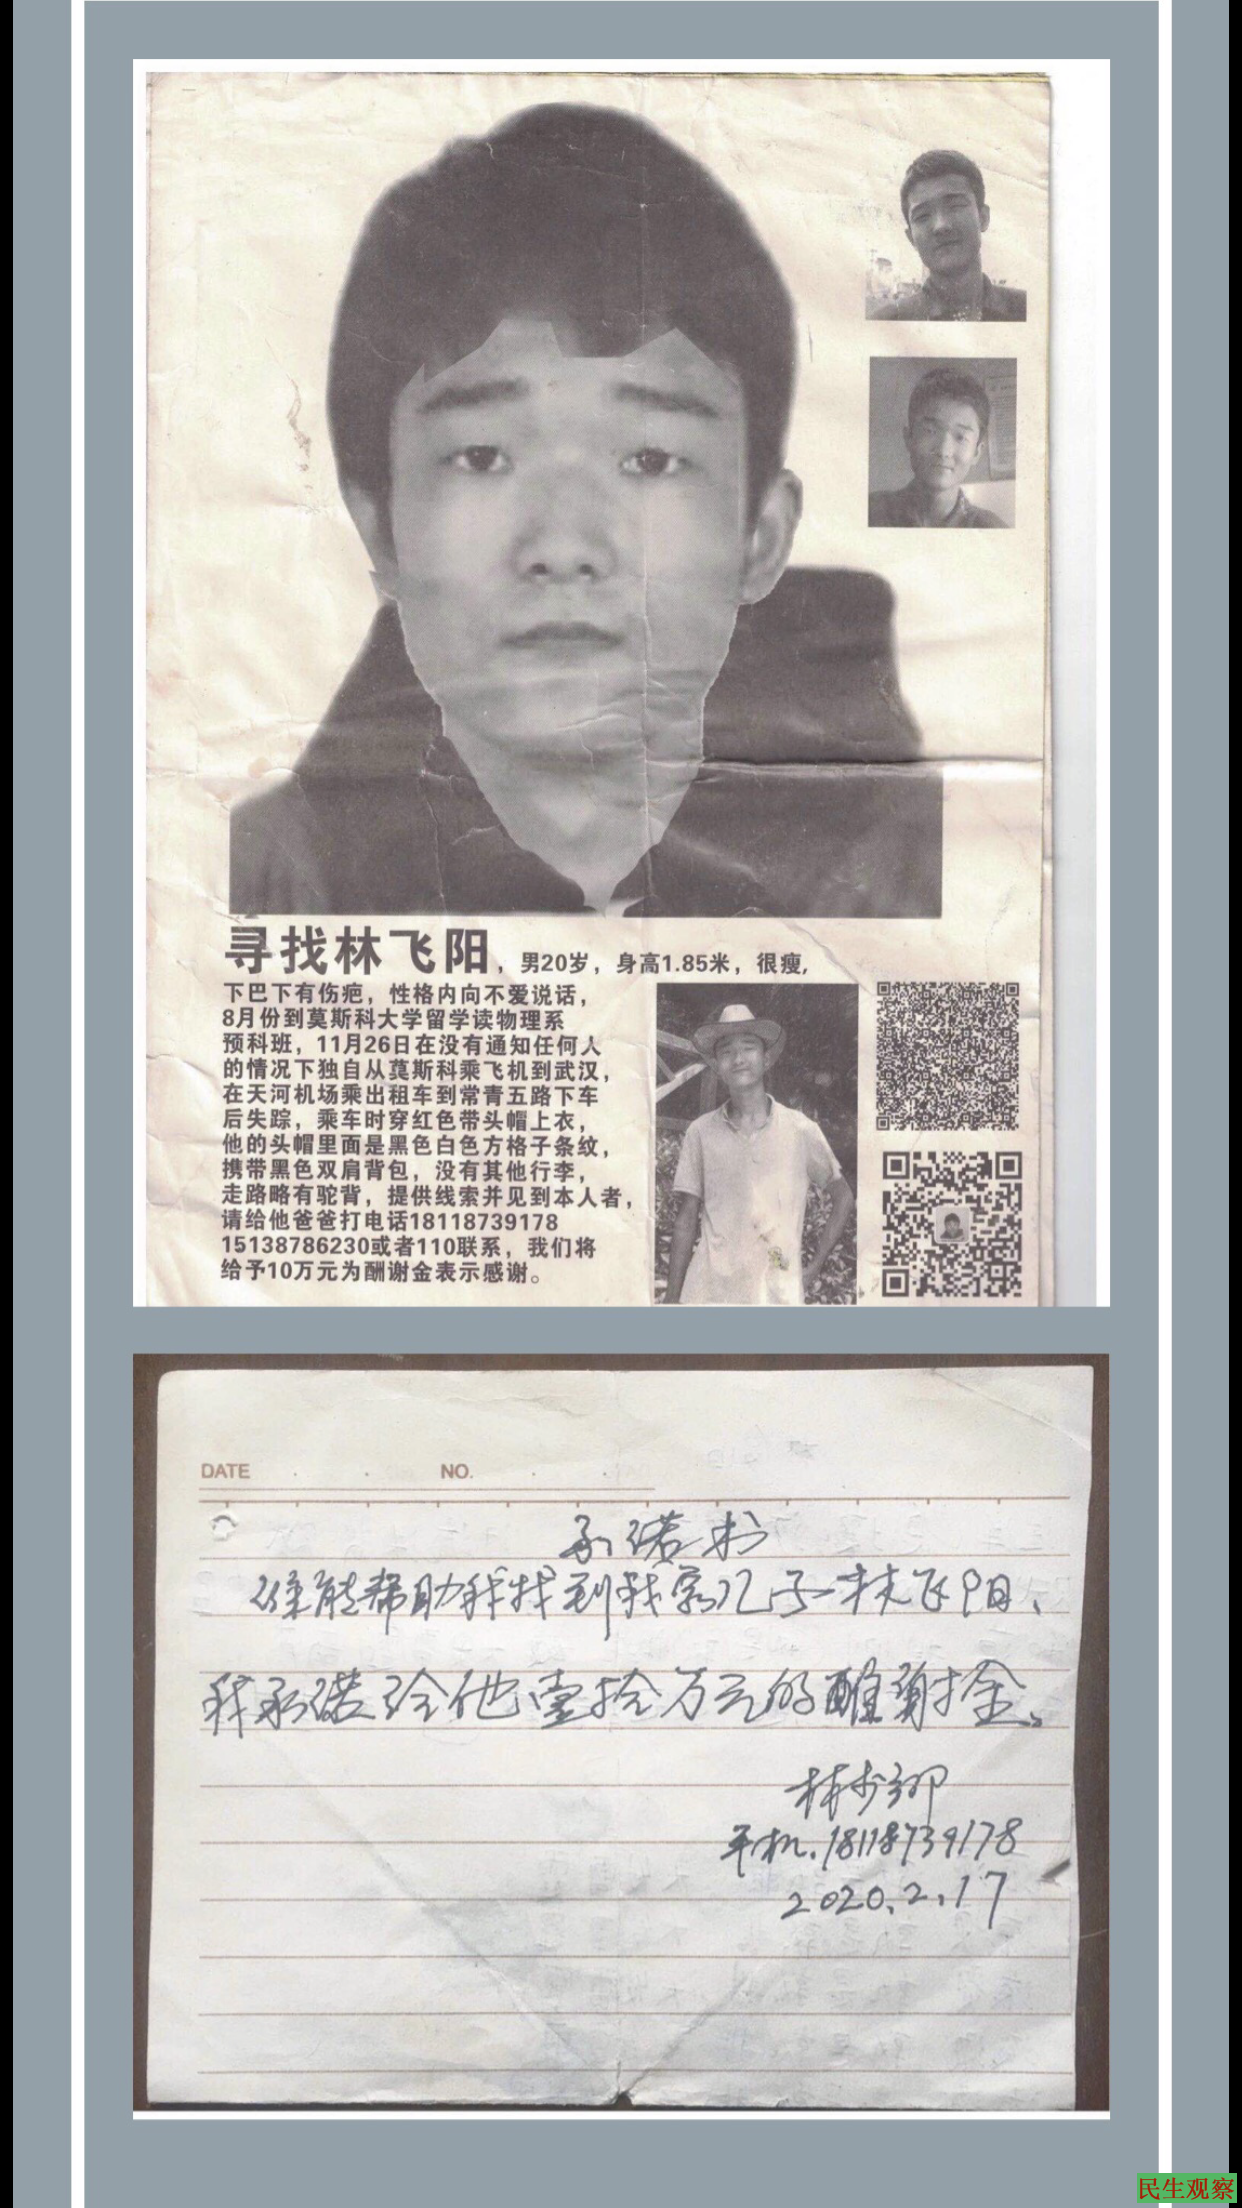 寻找林飞阳，男20岁，身高1.85米，很瘦,
下巴下有伤疤，性格内向不爱说话，
8月份到莫斯科大学留学读物理系
预科班，11月26日在没有通知任何人
的情况下独自从莫斯科乘飞机到武汉，
在天河机场乘出租车到常青五路下车
后失踪，乘车时穿红色带头帽上衣，
他的头帽里面是黑色白色方格子条纹，
携带黑色双肩背包，没有其他行李，
走路略有驼背，提供线索并见到本人者，
请给他爸爸打电话18118739178
15138786230或者110联系，我们将
给予10万元为酬谢金表示感谢。
DATE . . NO. . .
承诺书
谁能帮助我找到我家儿子林飞阳、
我承诺给他壹拾万元的酬谢金。
林少卿
手机.18118739178
2020.2.17
民生观察